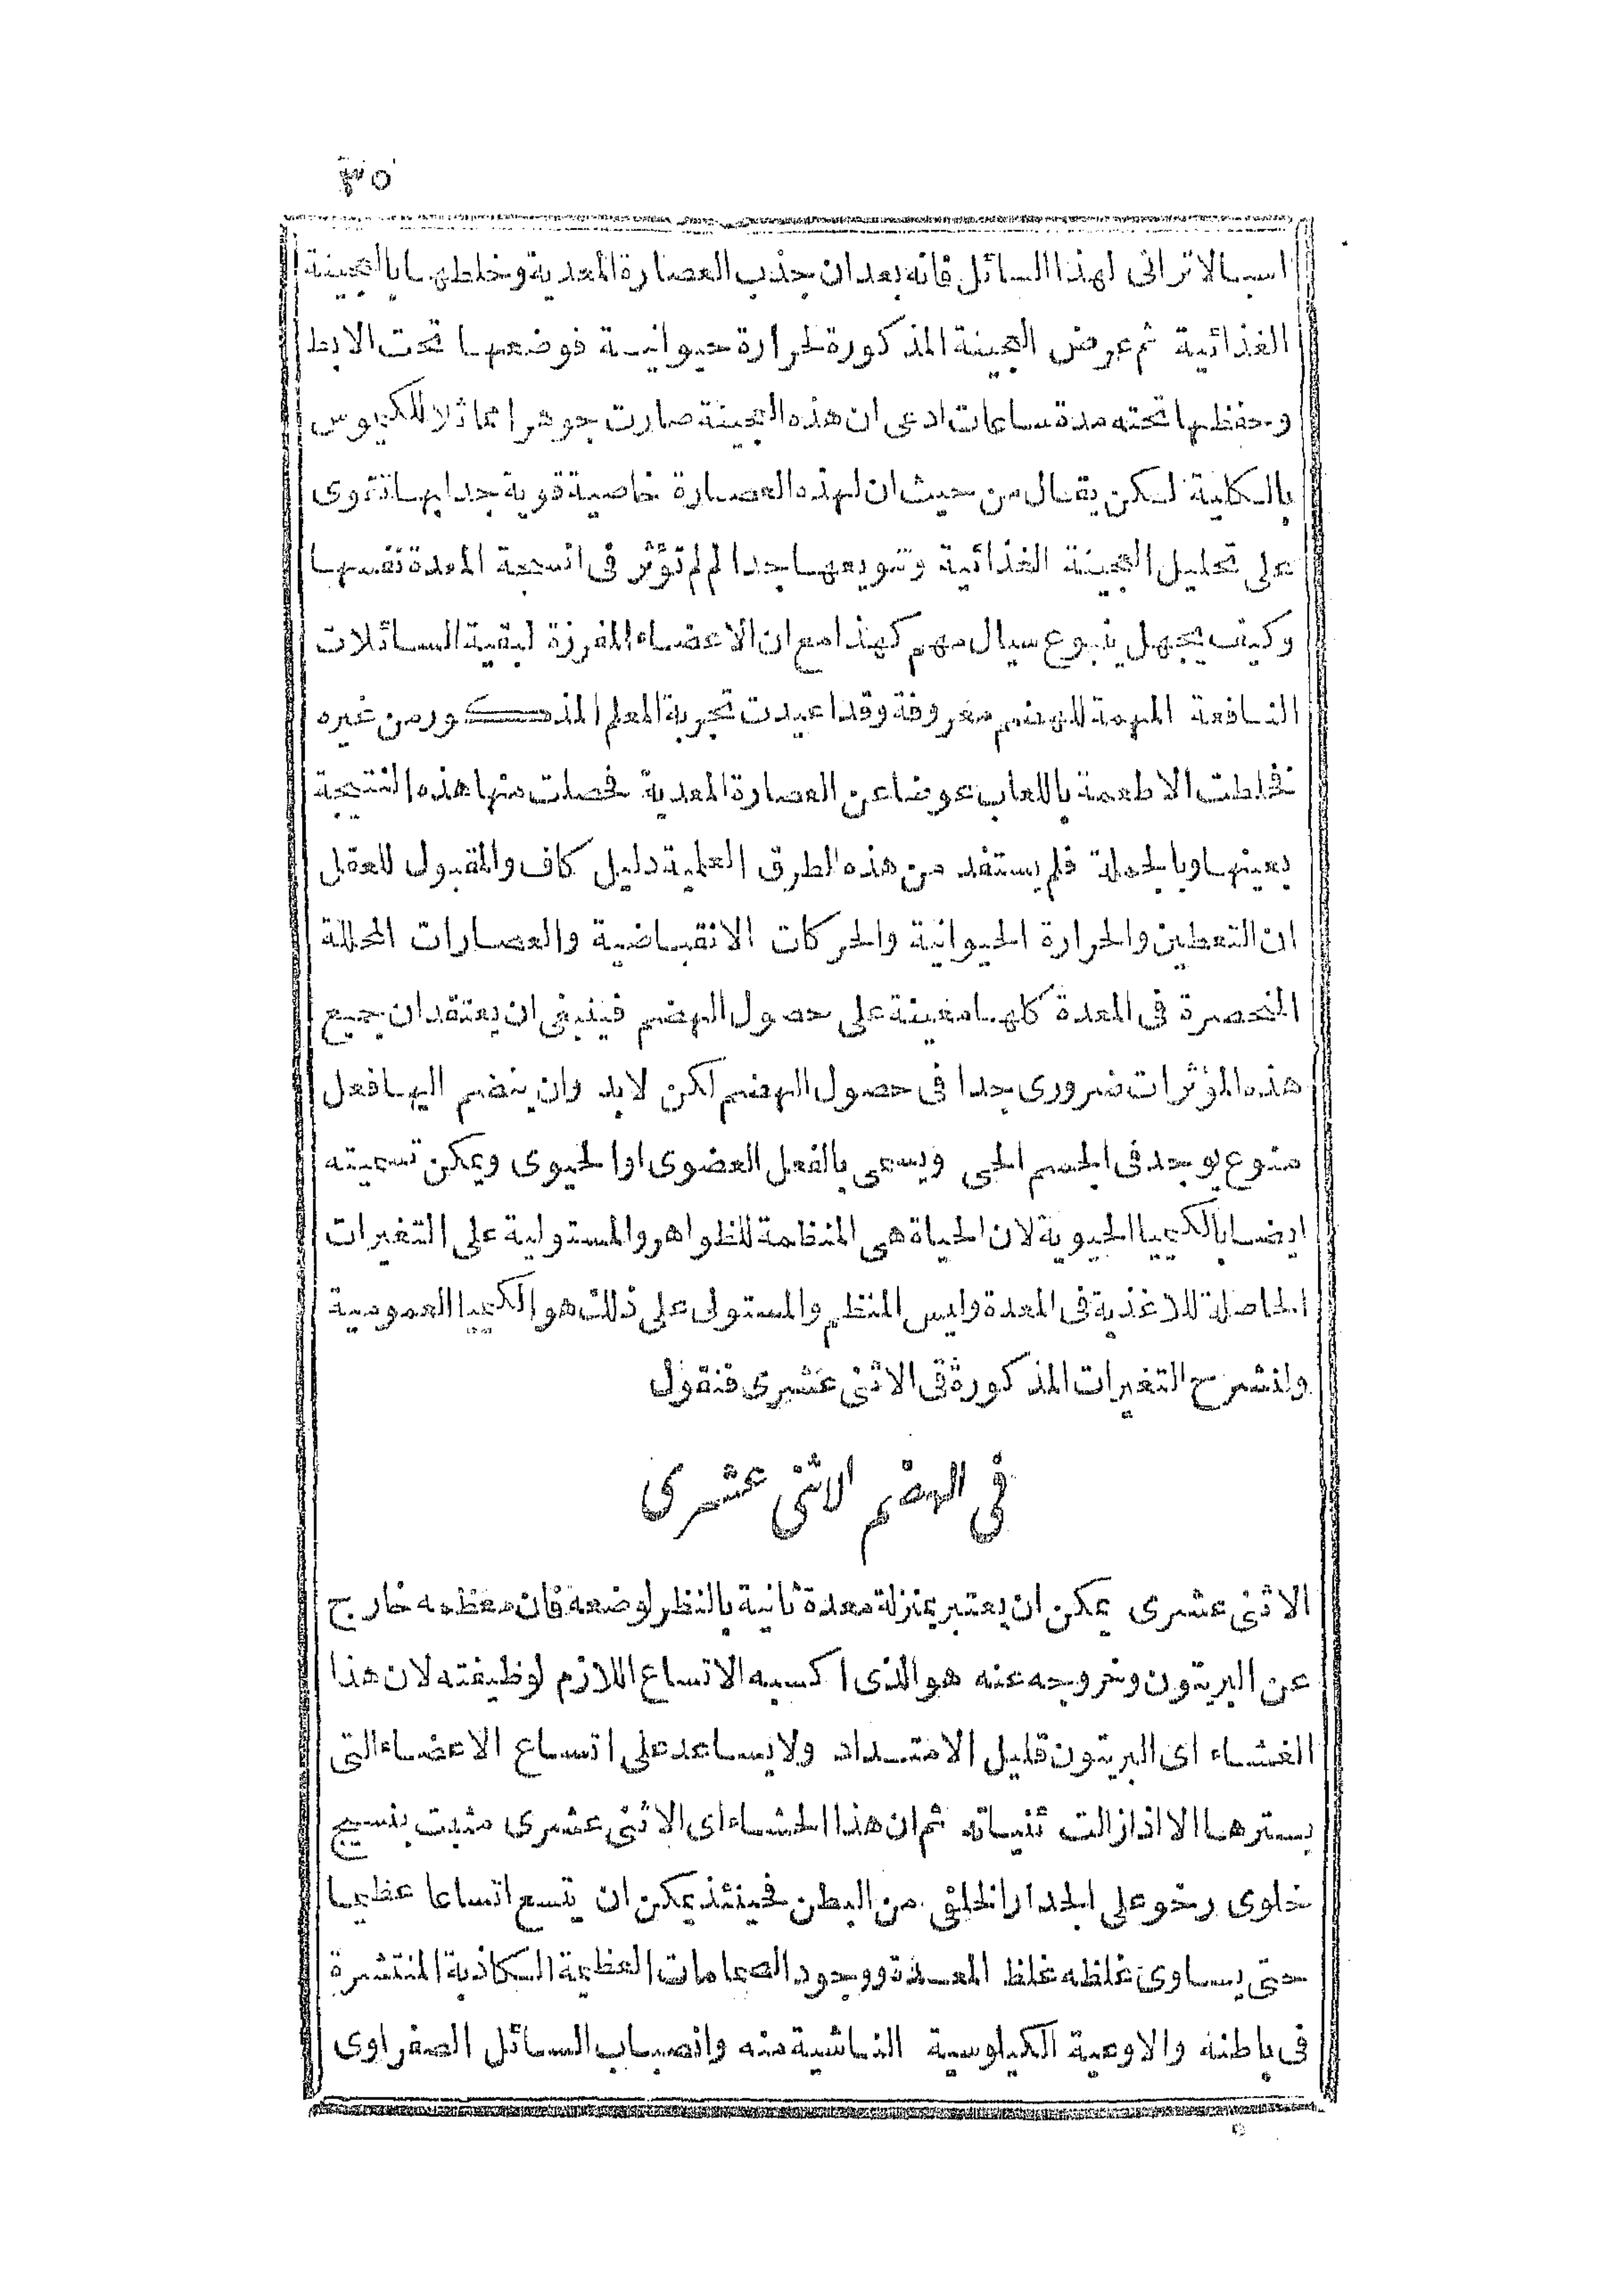 ٣٥
اسبالاترانى لهذا السائل فانه بعد ان جذب العصارة المعدية وخلطها بالعجينة
الغذائية ثم عرض العجينة المذكورة لحرارة حيوانية فوضعها تحت الابط
وحفظها تحته مدة ساعات ادعى ان هذه العجينة صارت جوهرا مماثلا للكيموس
بالكلية لكن يقال من حيث ان لهذه العصارة خاصية قوية جدا بها تقوى
على تحليل العجينة الغذائية وتنويعها جدا لم لم تؤثر فى انسجة المعدة نفسها
وكيف يجهل ينبوع سيال مهم كهذا مع ان الاعضاء المفرزة لبقية السائلات
النافعة المهمة للهضم معروفة وقد اعيدت تجربة المعلم المذكور من غيره
فخلطت الاطعمة باللعاب عوضا عن العصارة المعدية فحصلت منها هذه النتيجة
بعينها وبالجملة فلم يستفد من هذه الطرق العلمية دليل كاف والمقبول للعقل
ان التعطين والحرارة الحيوانية والحركات الانقباضية والعصارات المحللة
المنحصرة فى المعدة كلها معينة على حصول الهضم فينبغى ان يعتقد ان جميع
هذه المؤثرات ضرورى جدا فى حصول الهضم لكن لابد وان ينضم اليها فعل
منوع يوجد فى الجسم الحى ويسمى بالفعل العضوى او الحيوى ويمكن تسميته
ايضا بالكيميا الحيوية لان الحياة هى المنظمة للظواهر والمستولية على التغيرات
الحاصلة للاغذية فى المعدة وليس المنظم والمستولى على ذلك هو الكيميا العمومية
ولنشرح التغيرات المذكورة فى الاثنى عشرى فنقول
فى الهضم الاثنى عشرى
الاثنى عشرى يمكن ان يعتبر بمنزلة معدة ثانية بالنظر لوضعه فان معظمه خارج
عن البريتون وخروجه عنه هو الذى اكسبه الاتساع اللازم لوظيفته لان هذا
الغشاء اى البريتون قليل الامتداد ولا يساعد على اتساع الاعضاء التى
يسترها الا اذا زالت ثنياته ثم ان هذا الحشاء اى الاثنى عشرى مثبت بنسيج
خلوى رخو على الجدار الخلفى من البطن فحينئذ يمكن ان يتسع اتساعا عظيما
حتى يساوى غلظه غلظ المعدة ووجود الصمامات العظيمة الكاذبة المنتشرة
فى باطنه والاوعية الكيلوسية الناشية منه وانصباب السائل الصفراوى